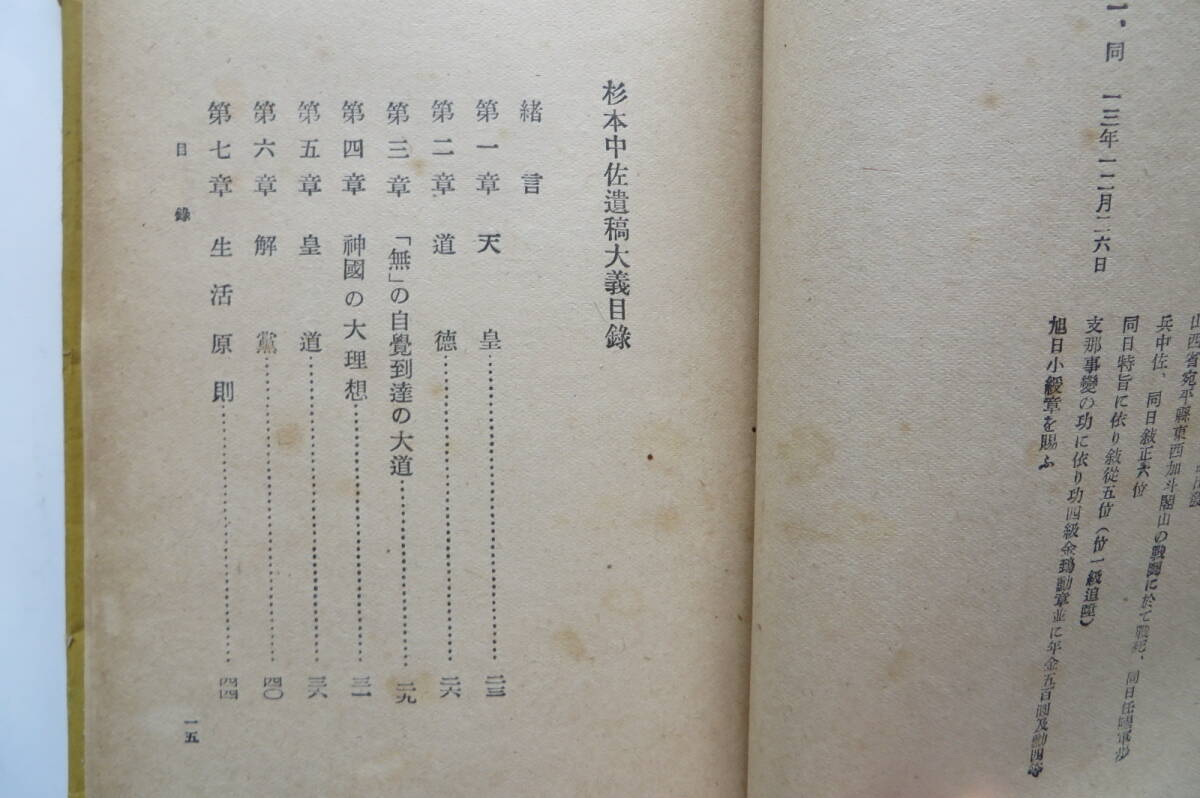 一、同 一三年一二月二六日
山西省宛平縣東西加斗閣山の戰鬪に於て戰死、同日任陸軍步
兵中佐、同日敍正六位
同日特旨に依り敍從五位(位一級追陞)
支那事變の功に依り功四級金鵄勳章並に年金五百圓及勳四等
旭日小綬章を賜ふ
杉本中佐遺稿大義目錄
緒言
第一章 天皇 二三
第二章 道德 二六
第三章 「無」の自覺到達の大道 二九
第四章 神國の大理想 三一
第五章 皇道 三六
第六章 解黨 四〇
第七章 生活原則 四四
目錄
一五